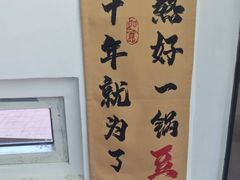 十年就为了
熬好一锅豆